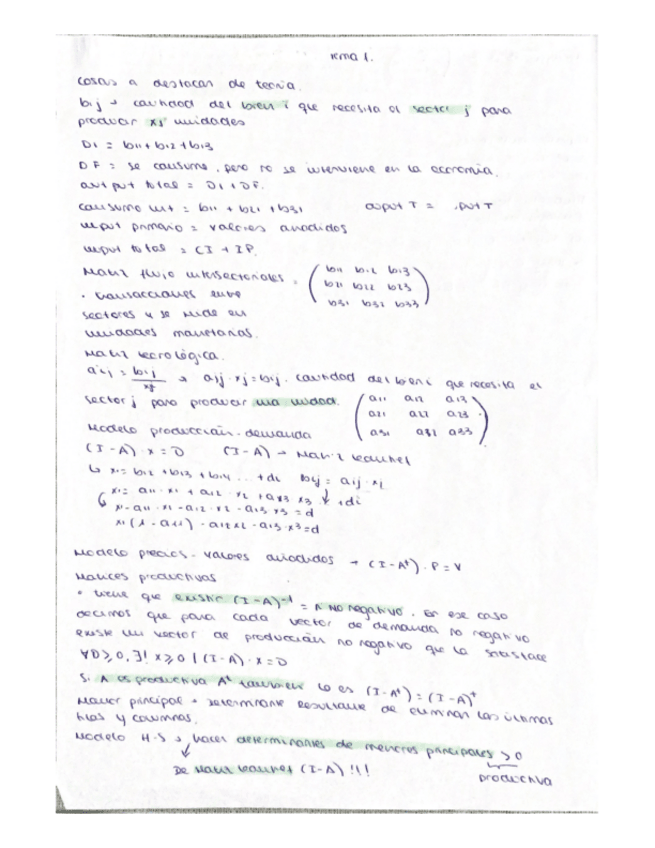 Tema 1.
Cosas a destacar de teoría.
bij → cantidad del bien i que necesita el sector j para
producir xj unidades
DI = b11 + b12 + b13
DF = se consume, pero no se interviene en la economía.
output total = DI + DF.
consumo int = b11 + b21 + b31 output T = .put T
input primario = valores añadidos
input total = CI + IP.
Matriz flujo intersectoriales = ( b11 b12 b13
b21 b22 b23
b31 b32 b33 )
· transacciones entre
sectores y se mide en
unidades monetarias.
Matriz tecnológica.
aij = bij/xj → aij · xj = bij. cantidad del bien i que necesita el
sector j para producir una unidad. ( a11 a12 a13
a21 a22 a23
a31 a32 a33 )
Modelo producción - demanda
(I - A) · x = D (I - A) → Matriz Leontief
↳ xi = bi2 + bi3 + bi4 ... + di bij = aij · xj
x1 = a11 · x1 + a12 · x2 + a13 x3 + di
x1 - a11 · x1 - a12 · x2 - a13 x3 = d
x1 (1 - a11) - a12 x2 - a13 · x3 = d
Modelo precios - valores añadidos → (I - Aᵗ) · P = V
Matrices productivas
• tiene que existir (I - A)⁻¹ = A no negativo. En ese caso
decimos que para cada vector de demanda no negativo
existe un vector de producción no negativo que la satisface
∀D ≥ 0, ∃! x ≥ 0 | (I - A) · x = D
Si A es productiva Aᵗ también lo es (I - Aᵗ) = (I - A)ᵗ
Menor principal → Determinante resultante de eliminar las últimas
filas y columnas.
Modelo H-S → hacer determinantes de menores principales > 0
productiva
De Matriz Leontief (I - A) !!!